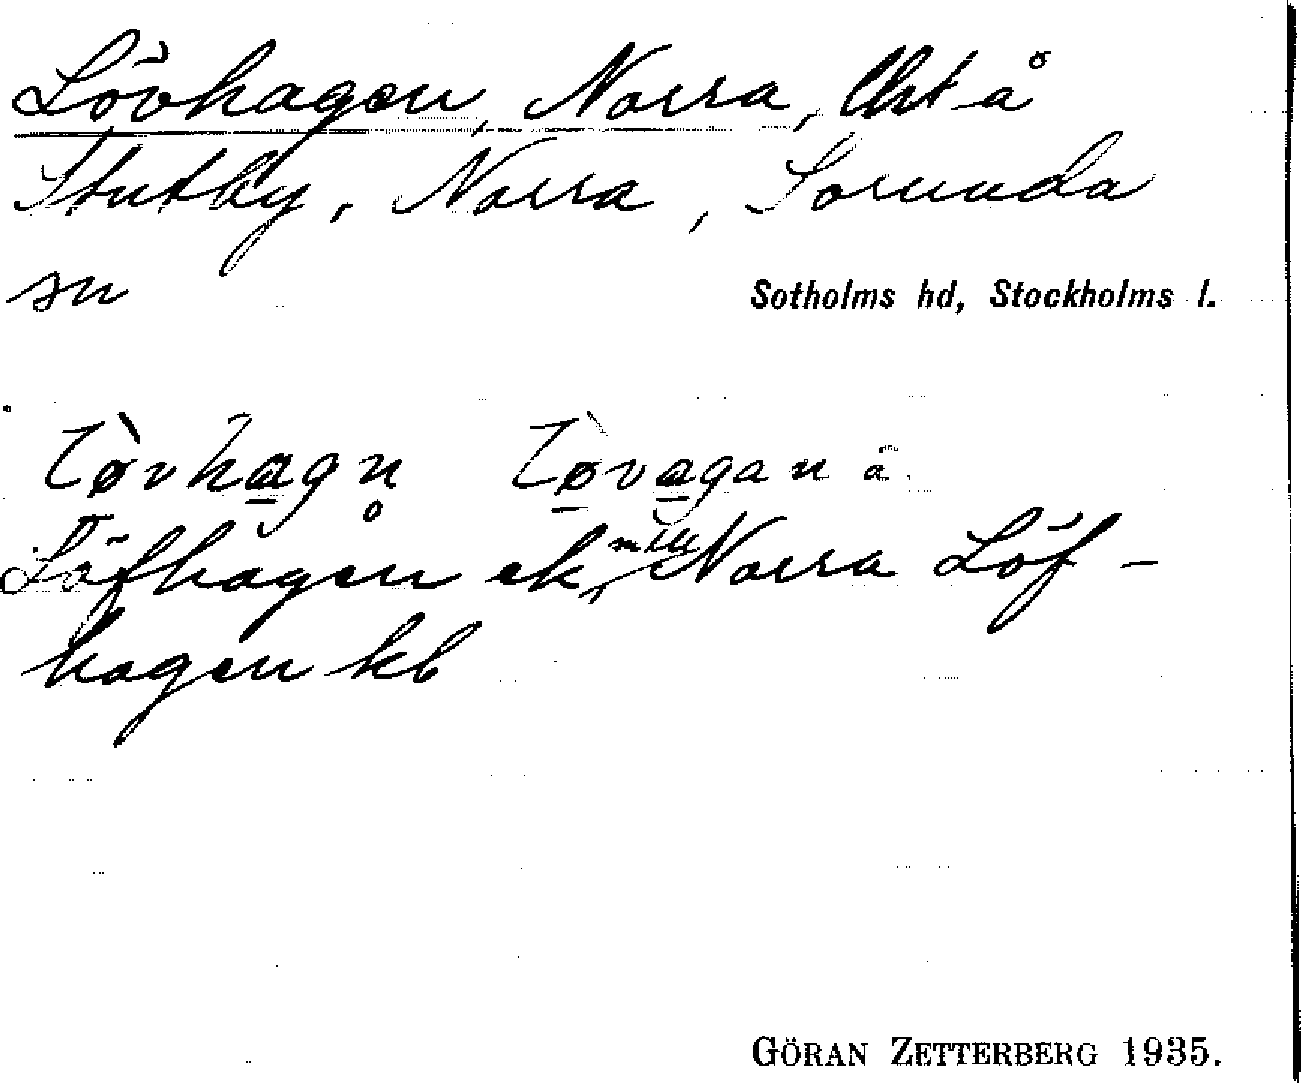 Lövhagen, Norra, lht å
Stutby, Norra, Sorunda
sn
Sotholms hd, Stockholms l.
Lø̀vhagn̥ Lø̀vagan ä
Löfhagen ek, Norra Löf-
hagen kb
GÖRAN ZETTERBERG 1935.